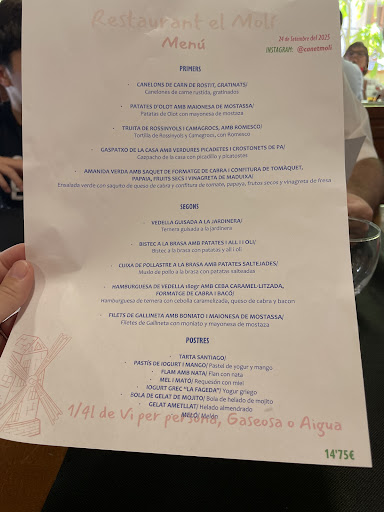 Restaurant el Molí
Menú
24 de Setembre del 2025
INSTAGRAM: @canetmoli
PRIMERS
· CANELONS DE CARN DE ROSTIT, GRATINATS/
Canelones de carne rustida, gratinados
· PATATES D'OLOT AMB MAIONESA DE MOSTASSA/
Patatas de Olot con mayonesa de mostaza
· TRUITA DE ROSSINYOLS I CAMAGROCS, AMB ROMESCO/
Tortilla de Rossinyols y Camagrocs, con Romesco
· GASPATXO DE LA CASA AMB VERDURES PICADETES I CROSTONETS DE PA/
Gazpacho de la casa con picadillo y picatostes
· AMANIDA VERDA AMB SAQUET DE FORMATGE DE CABRA I CONFITURA DE TOMÀQUET,
PAPAIA, FRUITS SECS I VINAGRETA DE MADUIXA/
Ensalada verde con saquito de queso de cabra y confitura de tomate, papaya, frutos secos y vinagreta de fresa
SEGONS
· VEDELLA GUISADA A LA JARDINERA/
Ternera guisada a la jardinera
· BISTEC A LA BRASA AMB PATATES I ALL I OLI/
Bistec a la brasa con patatas y all i oli
· CUIXA DE POLLASTRE A LA BRASA AMB PATATES SALTEJADES/
Muslo de pollo a la brasa con patatas salteadas
· HAMBURGUESA DE VEDELLA 180gr AMB CEBA CARAMEL·LITZADA,
FORMATGE DE CABRA I BACÓ/
Hamburguesa de ternera con cebolla caramelizada, queso de cabra y bacon
· FILETS DE GALLINETA AMB BONIATO I MAIONESA DE MOSTASSA/
Filetes de Gallineta con moniato y mayonesa de mostaza
POSTRES
· TARTA SANTIAGO/
· PASTÍS DE IOGURT I MANGO/ Pastel de yogur y mango
· FLAM AMB NATA/ Flan con nata
· MEL I MATÓ/ Requesón con miel
· IOGURT GREC "LA FAGEDA"/ Yogur griego
· BOLA DE GELAT DE MOJITO/ Bola de helado de mojito
· GELAT AMETLLAT/ Helado almendrado
MELÓ/ Melón
1/4l de Vi per persona, Gaseosa o Aigua
14'75€